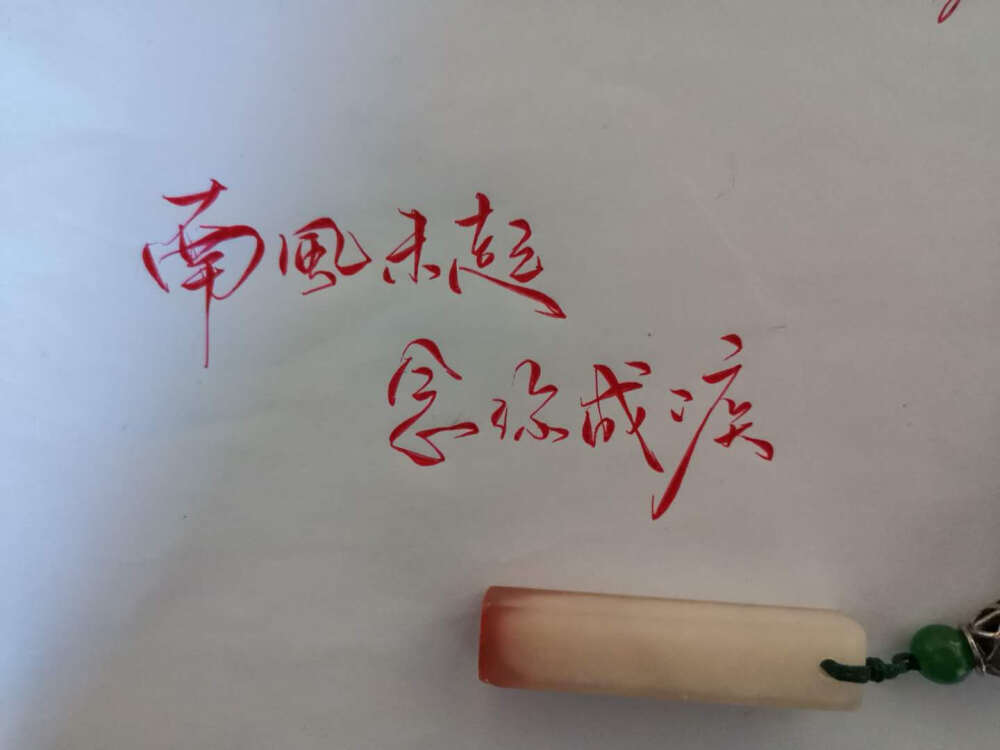 南風未起
念你成疾